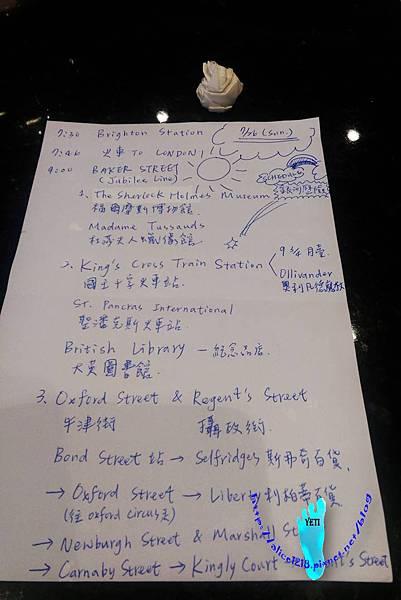 7:30 Brighton Station 7/26 (Sun.)
7:46 火車 TO LONDON!
9:00 BAKER STREET
(Jubilee Line)
SCHEDULE
1. The Sherlock Holmes Museum
福爾摩斯博物館.
Madame Tussauds
杜莎夫人蠟像館
2. King's Cross Train Station
國王十字火車站
9¾ 月臺.
Ollivander
奧利凡德魔杖
ST. Pancras International
聖潘克斯火車站
British Library — 紀念品店.
大英圖書館.
3. Oxford Street & Regent's Street
牛津街 攝政街.
Bond Street 站 → Selfridges 斯弗奇百貨.
→ Oxford Street → Liberty 利柏蒂百貨
(往 oxford circus 走)
→ Newburgh Street & Marshall St
→ Carnaby Street → Kingly Court → 's Street
YETI
http://alice1218.pixnet.net/blog